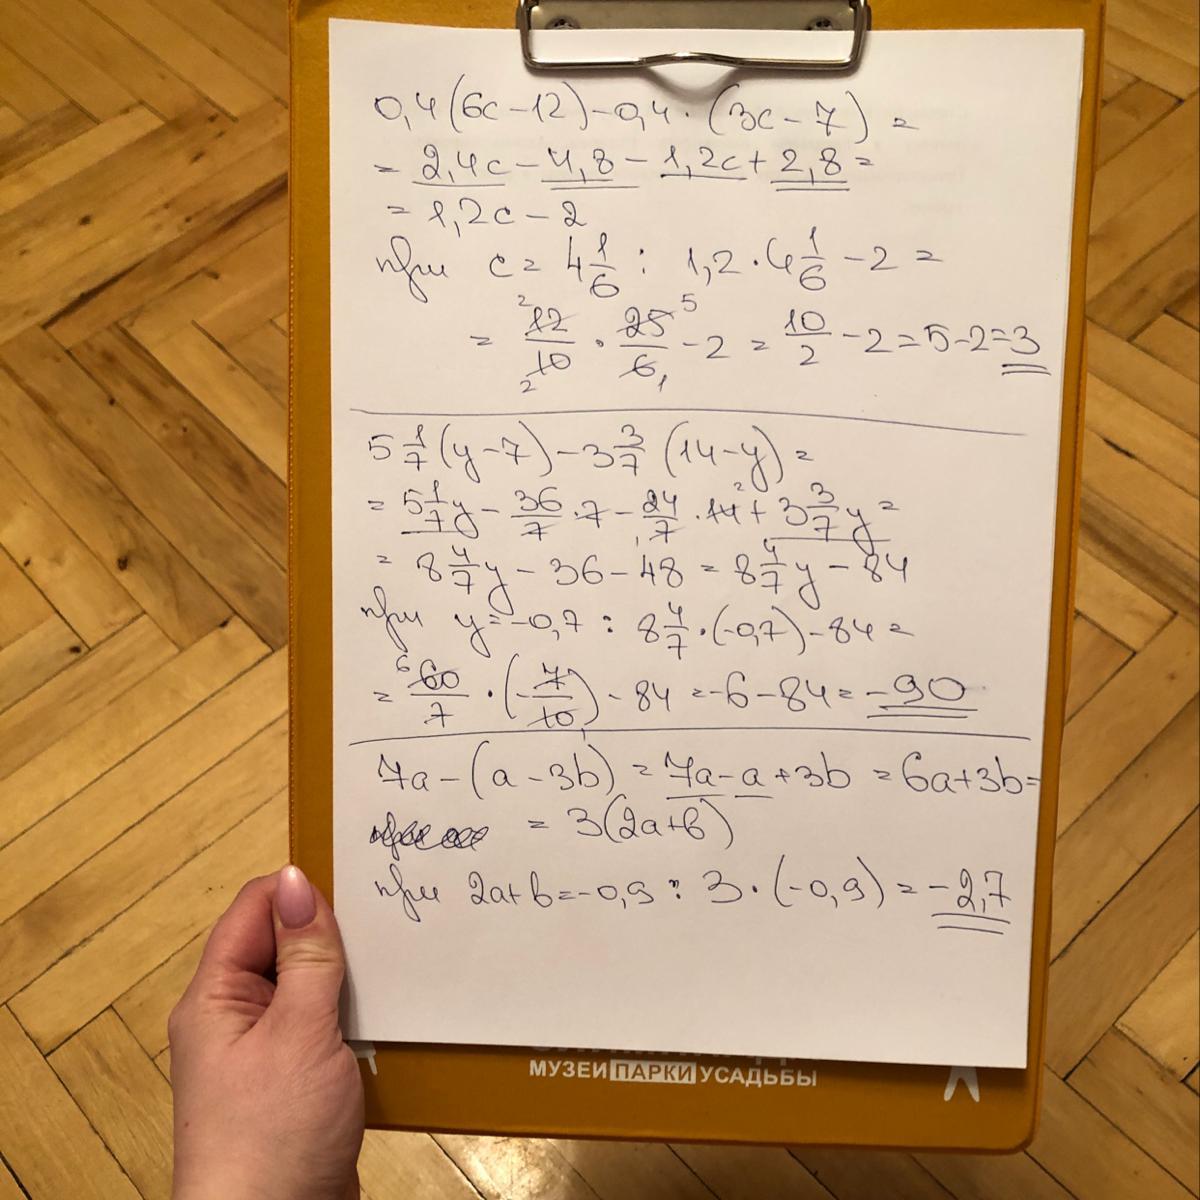 0,4(6c-12)-0,4·(3c-7)=
=2,4c-4,8-1,2c+2,8=
=1,2c-2
при c=4 1/6 : 1,2·4 1/6-2=
= 12/10 · 25/6 -2 = 10/2 -2=5-2=3
5 1/7 (y-7)-3 3/7 (14-y)=
= 5 1/7 y - 36/7 ·7 - 24/7 ·14 + 3 3/7 y=
= 8 4/7 y -36-48 = 8 4/7 y -84
при y=-0,7 : 8 4/7 ·(-0,7)-84=
= 60/7 · (-7/10) -84=-6-84=-90
7a-(a-3b)=7a-a+3b=6a+3b=
=3(2a+b)
при 2a+b=-0,9 : 3·(-0,9)=-2,7
МУЗЕИ ПАРКИ УСАДЬБЫ